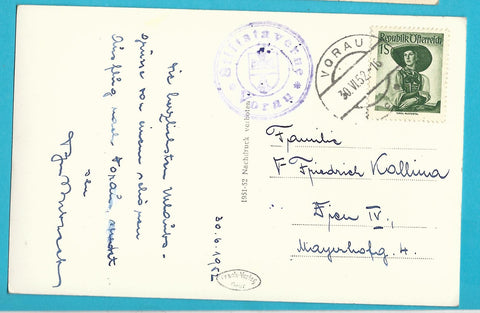 Die herzlichsten Urlaubs-
grüsse von einem schönen
Ausflug nach Vorau,
30.6.1952
1951-52 Nachdruck verboten
Stiftstaverne
Vorau
VORAU
30.VI.52-16
Republik Österreich
1S
Familie
F Friedrich Kallina
Wien IV,
Mayerhofg. 4.